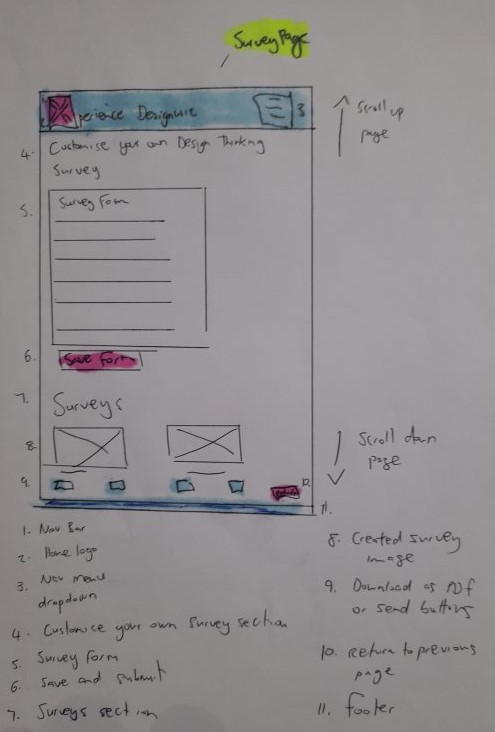 Survey Page
Experience Designwize
3
Scroll up
page
4. Customise your own Design Thinking
Survey
5.
Survey Form
6.
Save Form
7.
Surveys
8.
Scroll down
page
9.
10.
11.
1. Nav Bar
2. Home logo
3. Nav menu
dropdown
4. Customise your own survey section
5. Survey form
6. Save and submit
7. Surveys section
8. Created survey
image
9. Download as PDF
or send buttons
10. Return to previous
page
11. footer